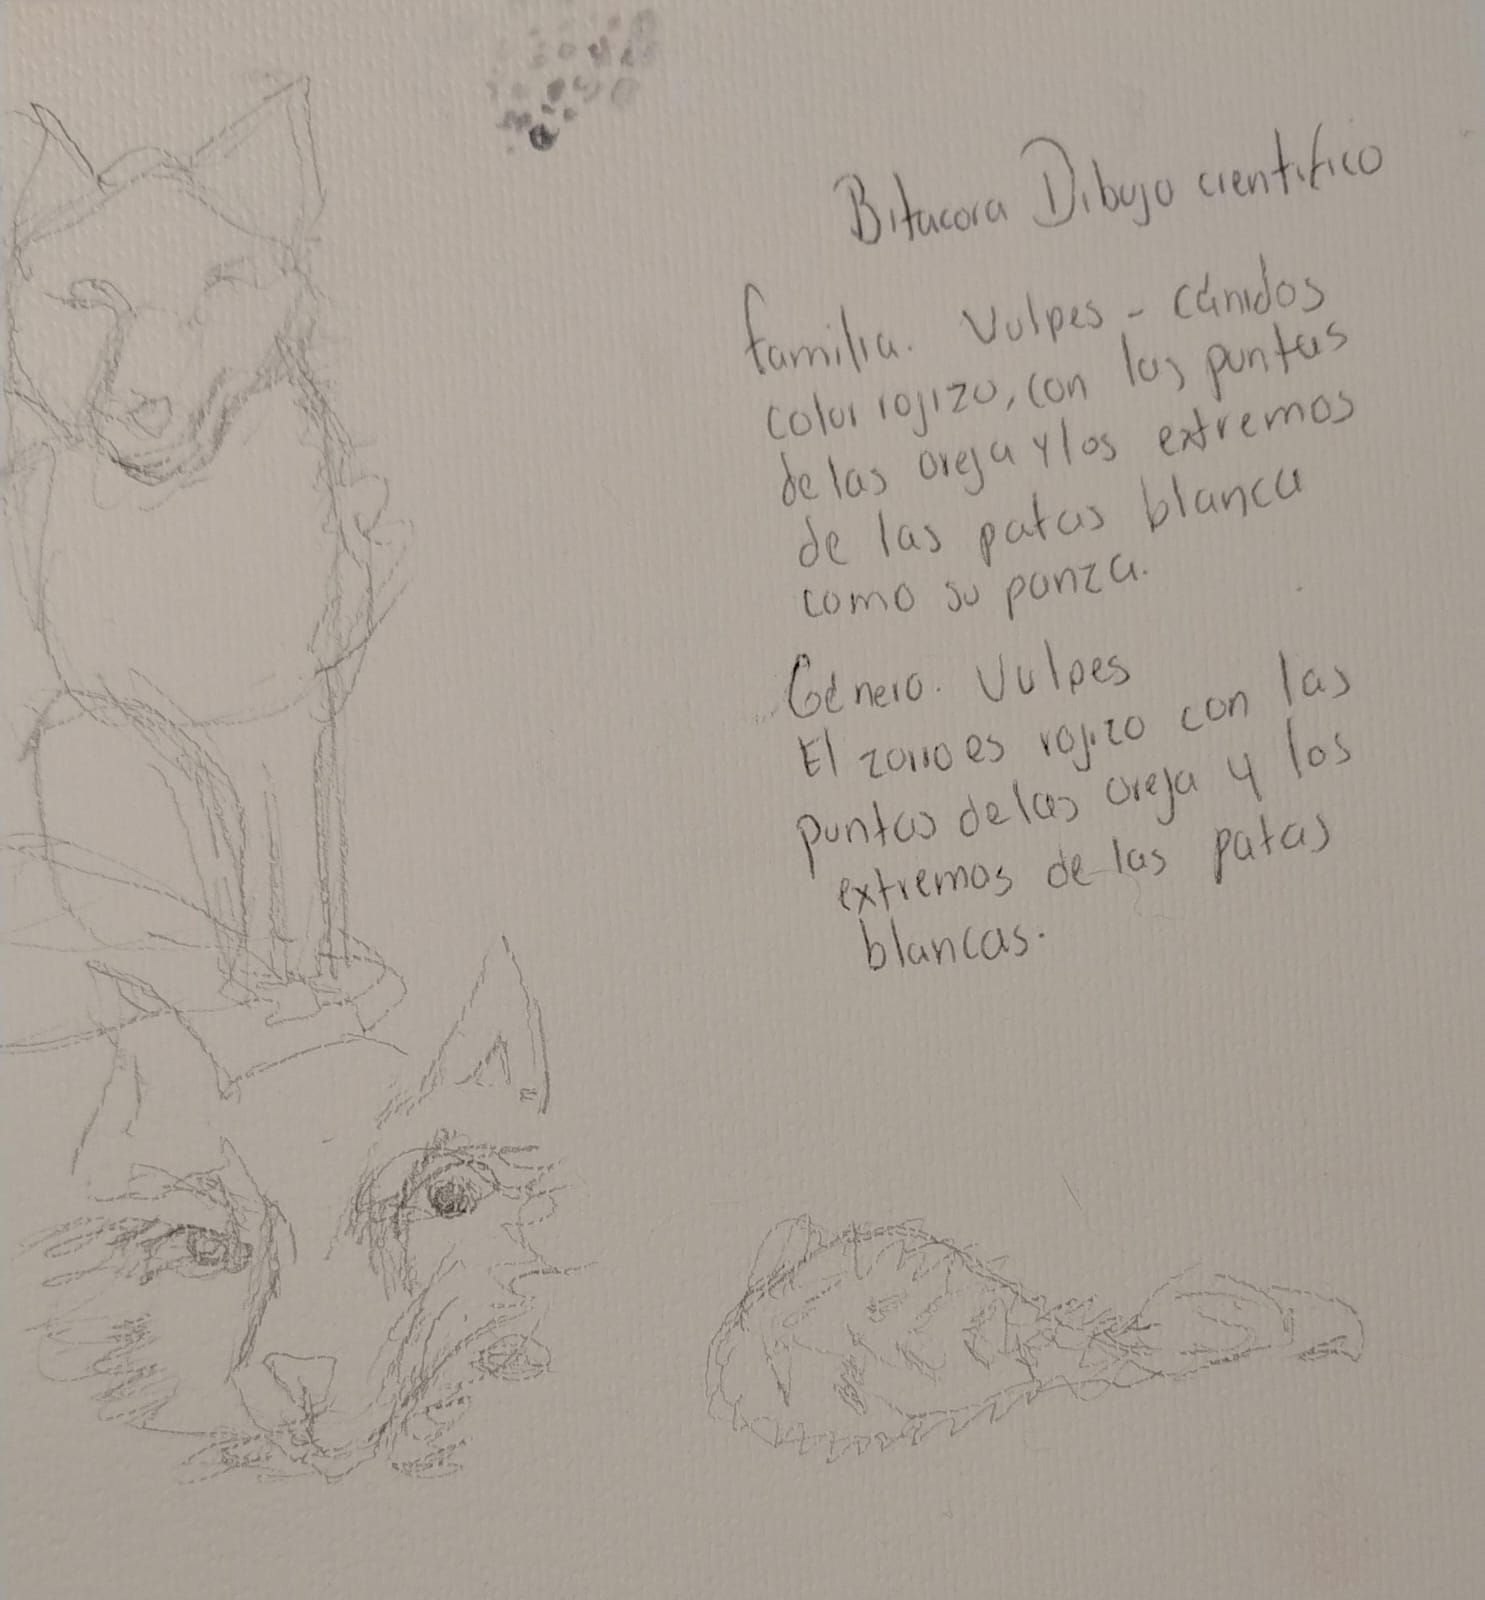 Bitacora Dibujo cientifico
familia. Vulpes - cánidos
color rojizo, con las puntas
de las oreja y los extremos
de las patas blanca
como su panza.
Género. Vulpes
El zorro es rojizo con las
puntas de las oreja y los
extremos de las patas
blancas.